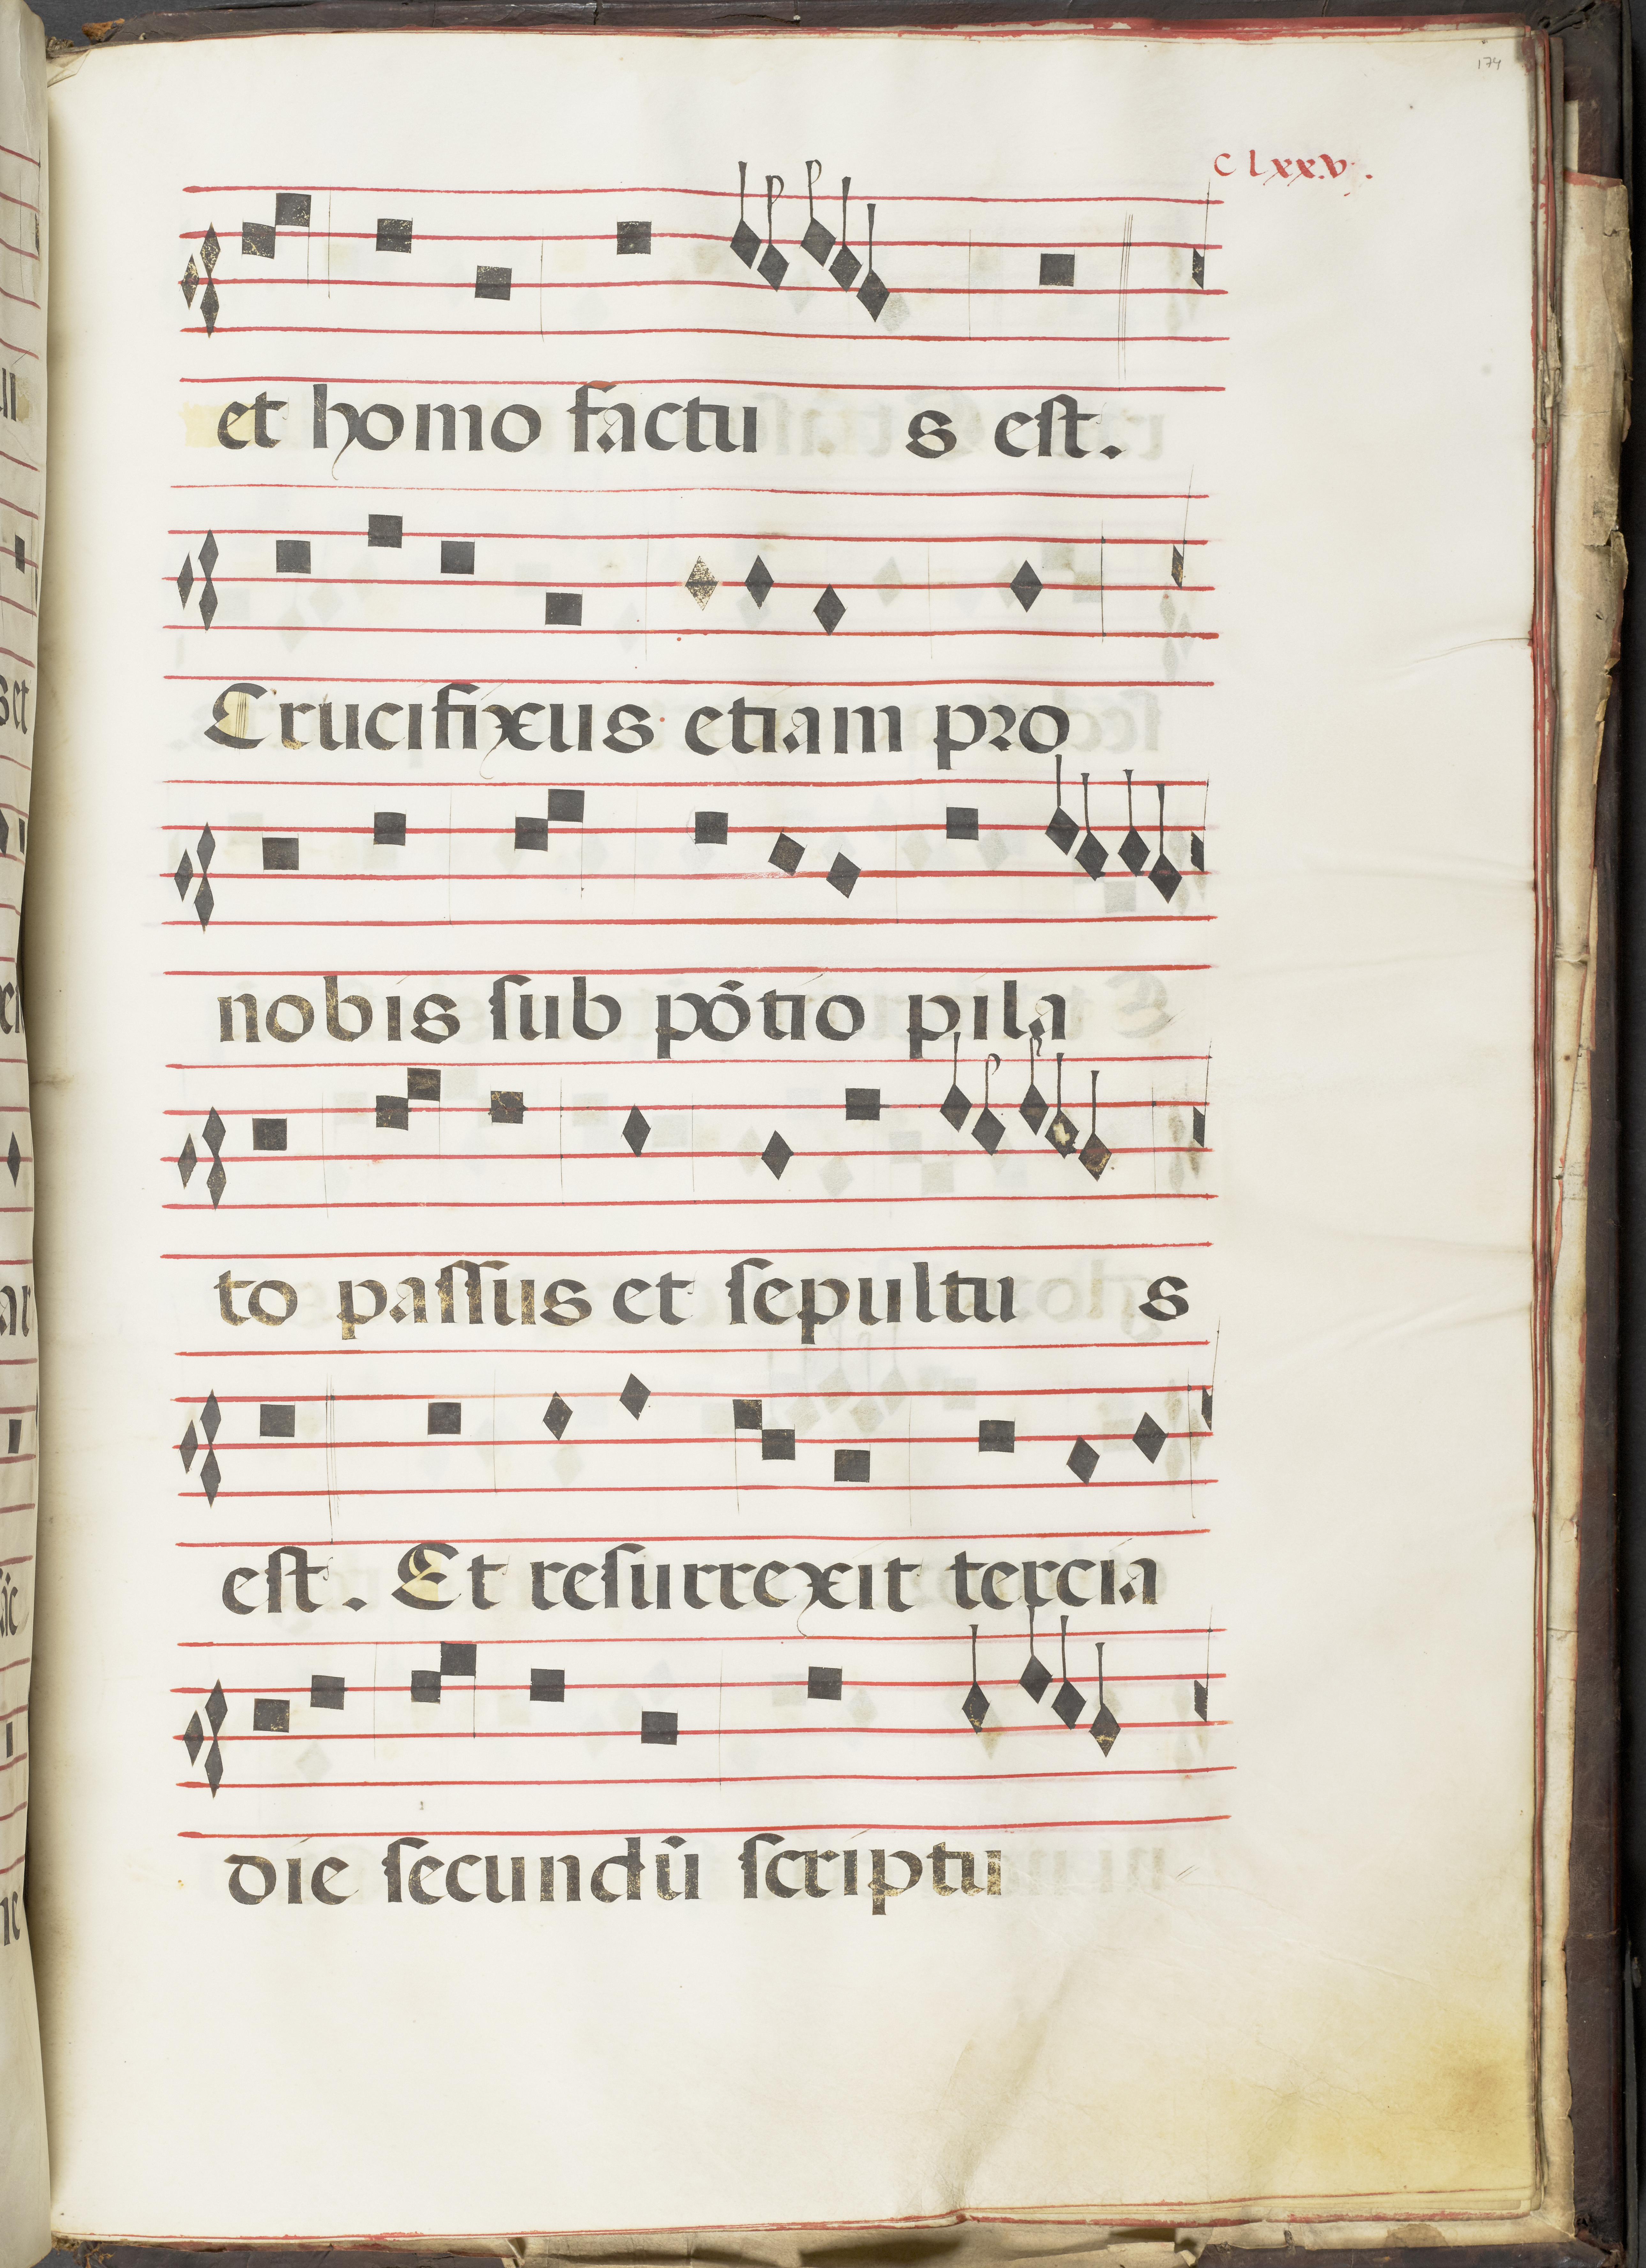 174
C lxxv.
et homo factu s est.
Crucifixus etiam pro
nobis sub põtio pila
to passus et sepultu s
est. Et resurrexit tercia
die secundũ scriptu